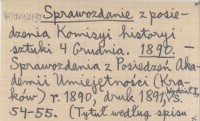 Sprawozdanie z posie-
dzenia Komisyi historyi
sztuki 4 Grudnia. 1890. —
Sprawozdania z Posiedzeń Aka-
demii Umiejętności (Kra-
ków) r. 1890, druk 1891, s.
54-55. (Tytuł według spisu